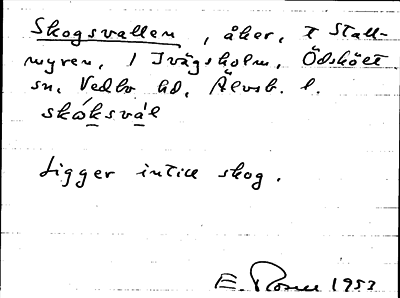 Skogsvallen, åker, t Stall-
myren, / Ivägsholm, Ödskölt
sn, Vedbo hd, Älvsb. l.
skóksvál
Ligger intill skog.
E. 1953